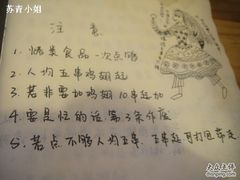 苏青小姐
注意
1. 烤类食品一次点够
2. 人均五串鸡翅起
3. 若非要加鸡翅 10串起加
4. 要是忙的话 第3条作废
5. 若点不够人均五串, 五串起可打包带走
大众点评